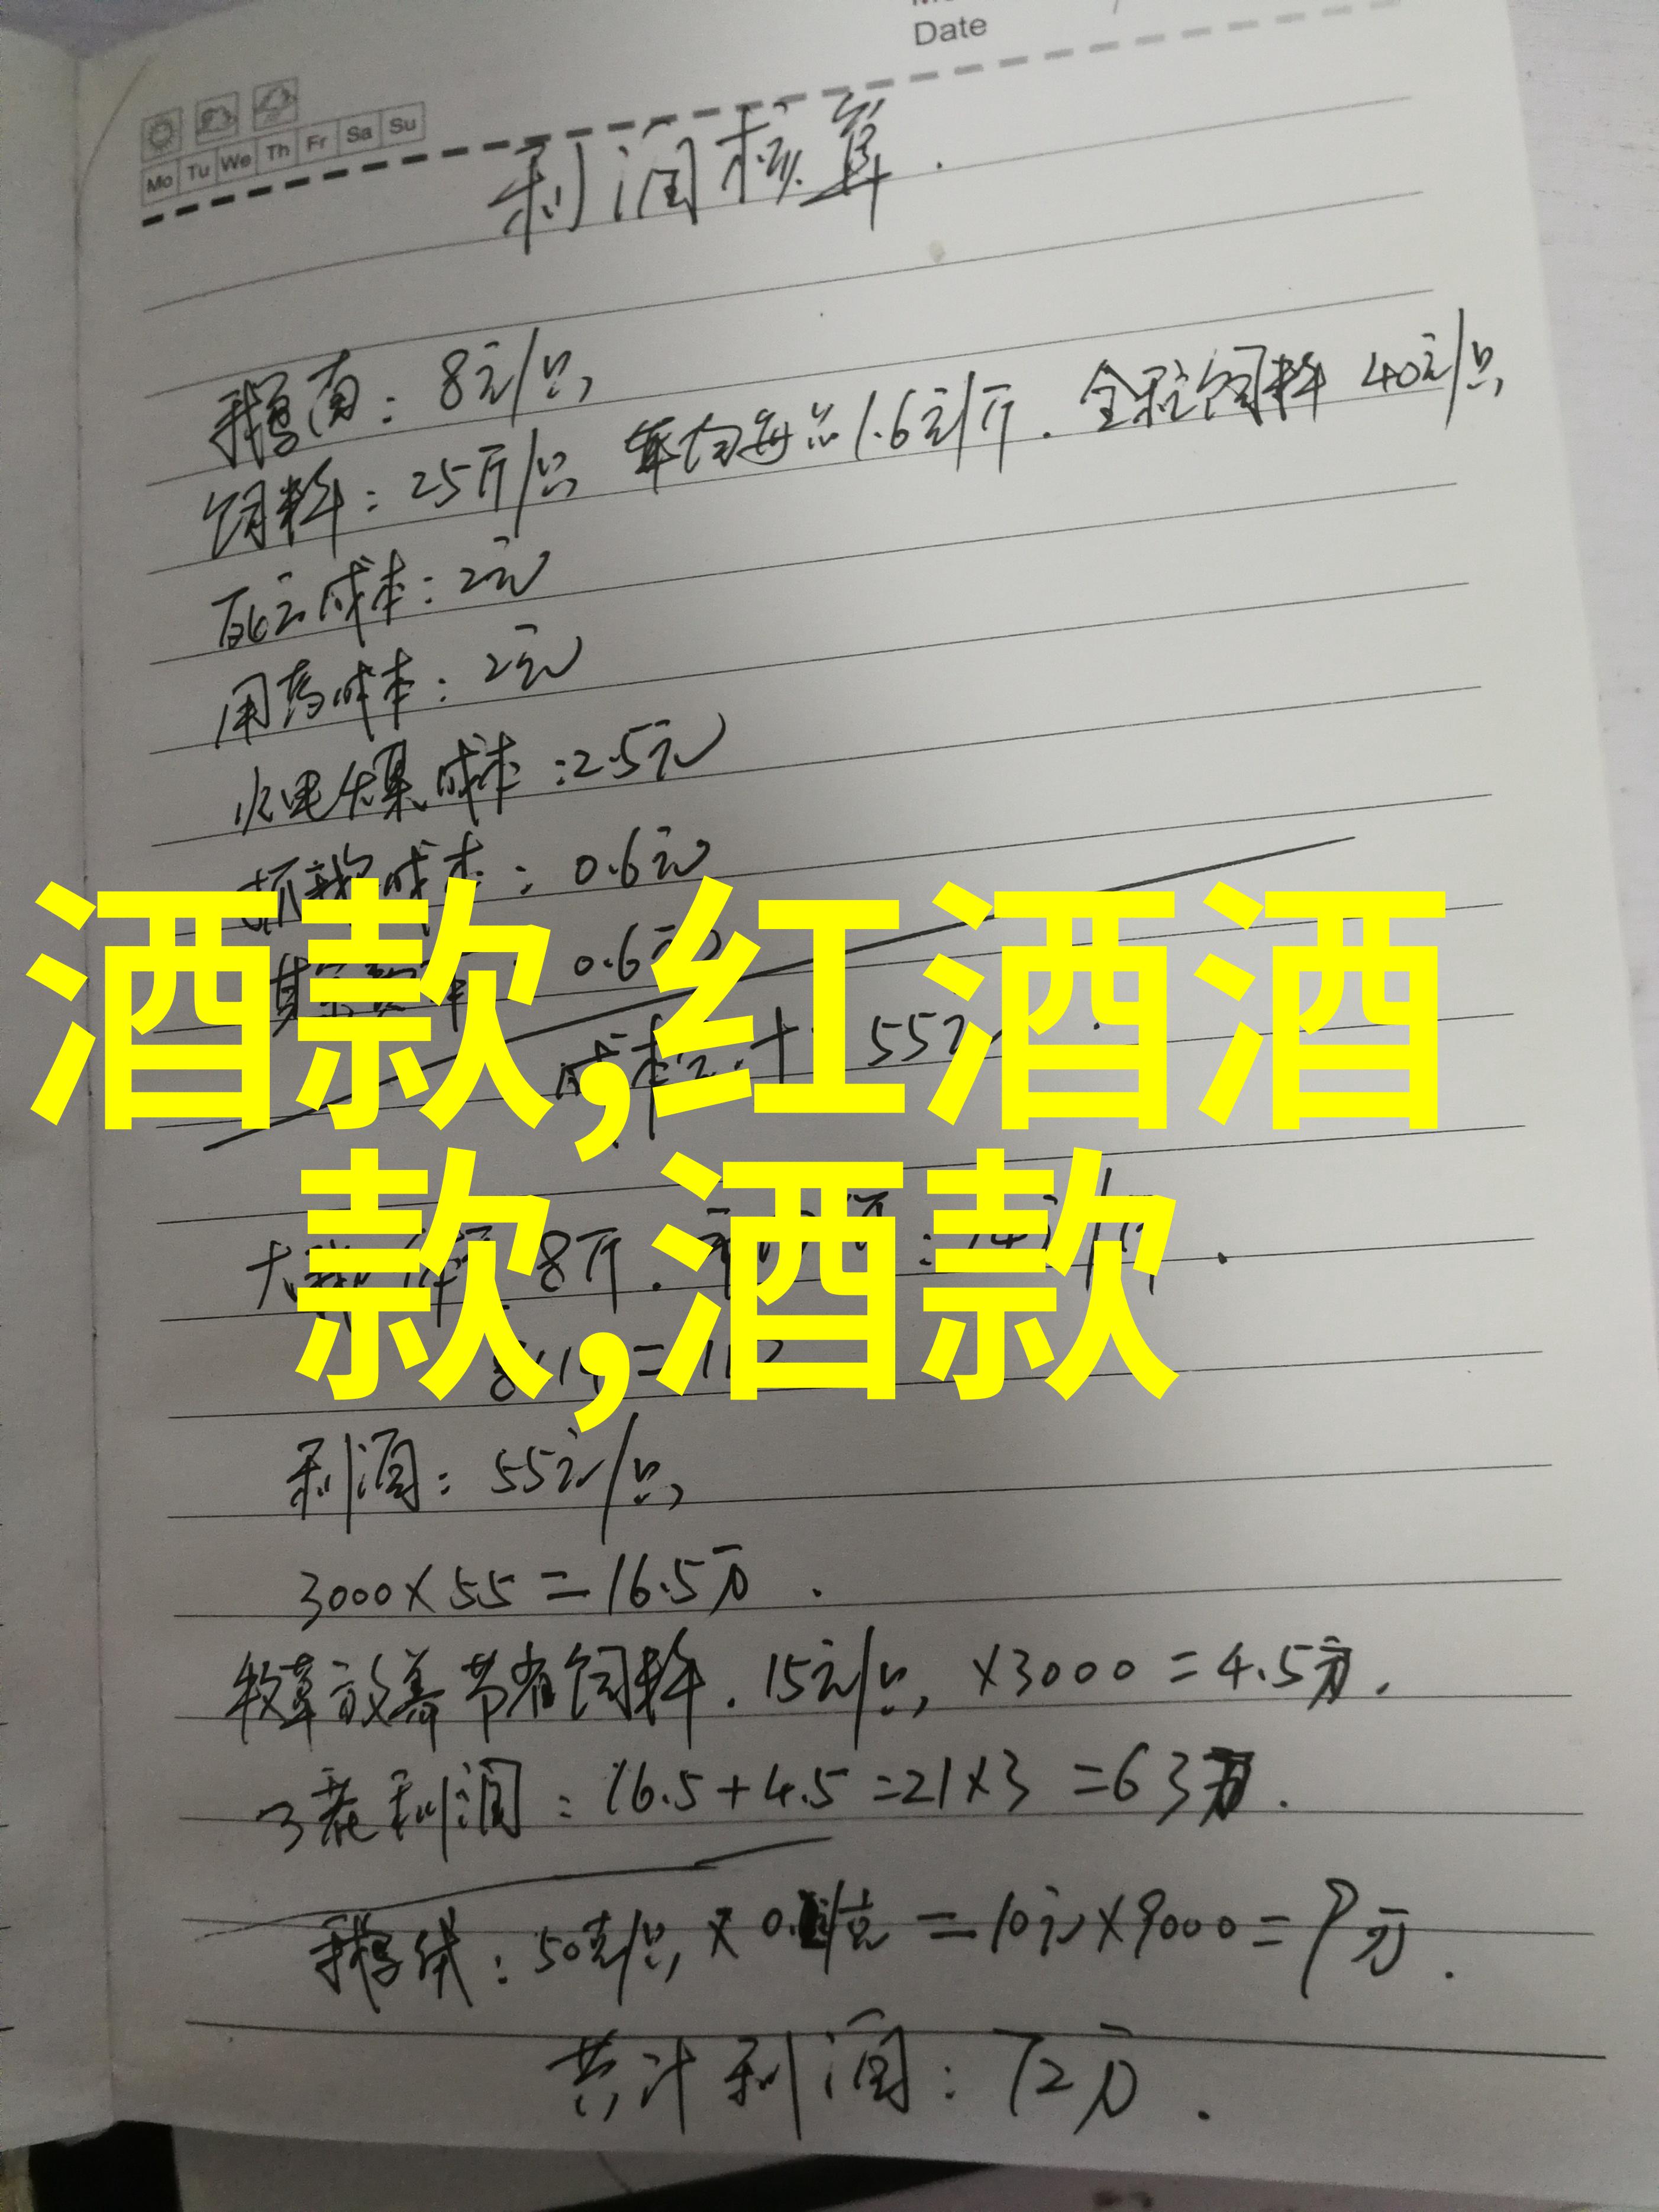 Date
Mo Tu We Th Fr Sa Su
利润核算.
鹅苗: 8元/只,
饲料: 25斤/只, 平均每 1.6元/斤. 全程饲料 40元/只,
死亡成本: 2元
用药成本: 2元
水电 成本: 2.5元
成本: 0.6元
其 0.6元
酒款,红酒酒
款,酒款
55元
8斤.
利润: 55元/只,
3000×55=16.5万.
牧草放养节省饲料. 15元/只, ×3000=4.5万.
3茬利润: 16.5+4.5=21×3=63万.
鹅绒: 50克/只, × /克=10元×9000=9万.
共计利润: 72万.